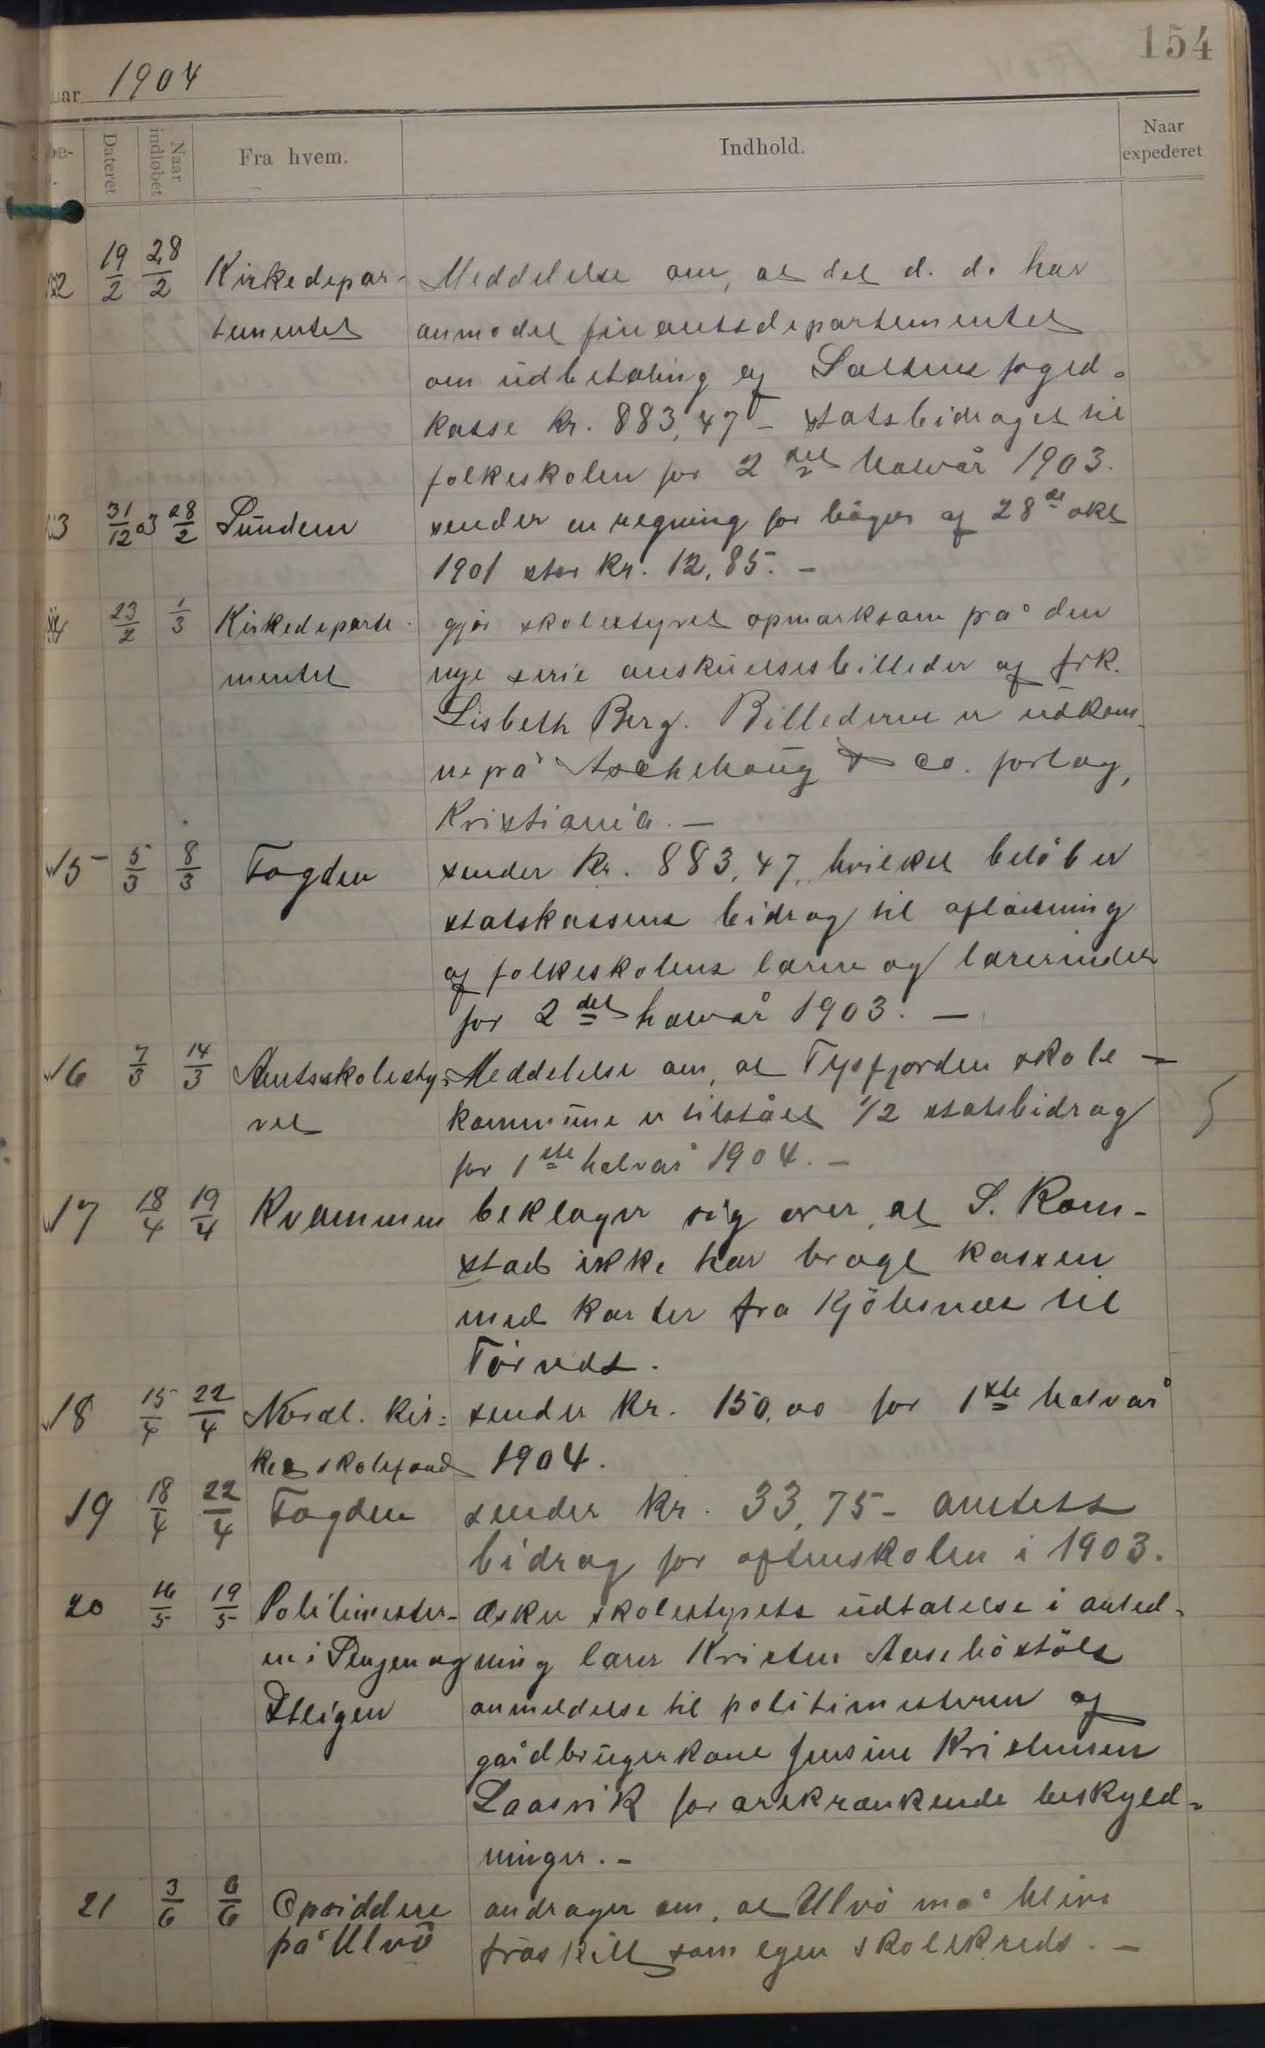 154
uar 1904
Dateret
Naar indløbet
Fra hvem.
Indhold.
Naar expederet
12 19/2 28/2 Kirkedepar- Meddelelse om, at det d. d. har
tementet anmodet finantsdepartementet
om udbetaling af Saltens foged-
kasse kr. 883,47 - statsbidraget til
folkeskolen for 2det halvår 1903.
13 31/12 03 28/2 Sundem sender en regning for bøger af 28de okt
1901 stor kr. 12,85. -
14 23/2 1/3 Kirkedeparte- gjør skolestyret opmærksom på den
mentet nye serie anskuelsesbilleder af frk.
Lisbeth Berg. Billederne er udkom-
ne på Aschehoug & co. forlag,
Kristiania. -
15 5/3 8/3 Fogden sender kr. 883,47, hvilket beløb er
statskassens bidrag til aflønning
af folkeskolens lærere og lærerinder
for 2det halvår 1903. -
16 7/3 14/3 Amtsskolesty- Meddelelse om, at Tysfjorden skole-
ret kommune er tilstået 1/2 statsbidrag
for 1ste halvår 1904. -
17 18/4 19/4 Kvammen beklager sig over, at S. Kom-
stad ikke har bragt kassen
med karter fra Kjøbsnæs til
18 15/4 22/4 Nordl. kir- sender kr. 150,00 for 1ste halvår
kes skolefond 1904.
19 18/4 22/4 Fogden sender kr. 33,75 - amtets
bidrag for aftenskolen i 1903.
20 16/5 19/5 Politimester- æsker skolestyrets udtalelse i anled-
en i Senjen og ning lærer Kristen
anmeldelse til politimesteren af
gårdbrugerkone Jensine Kristensen
for ærekrænkende beskyld-
ninger. -
21 3/6 6/6 Opsiddere andrager om, at Ulvø må blive
på Ulvø fraskilt som egen skolekreds. -